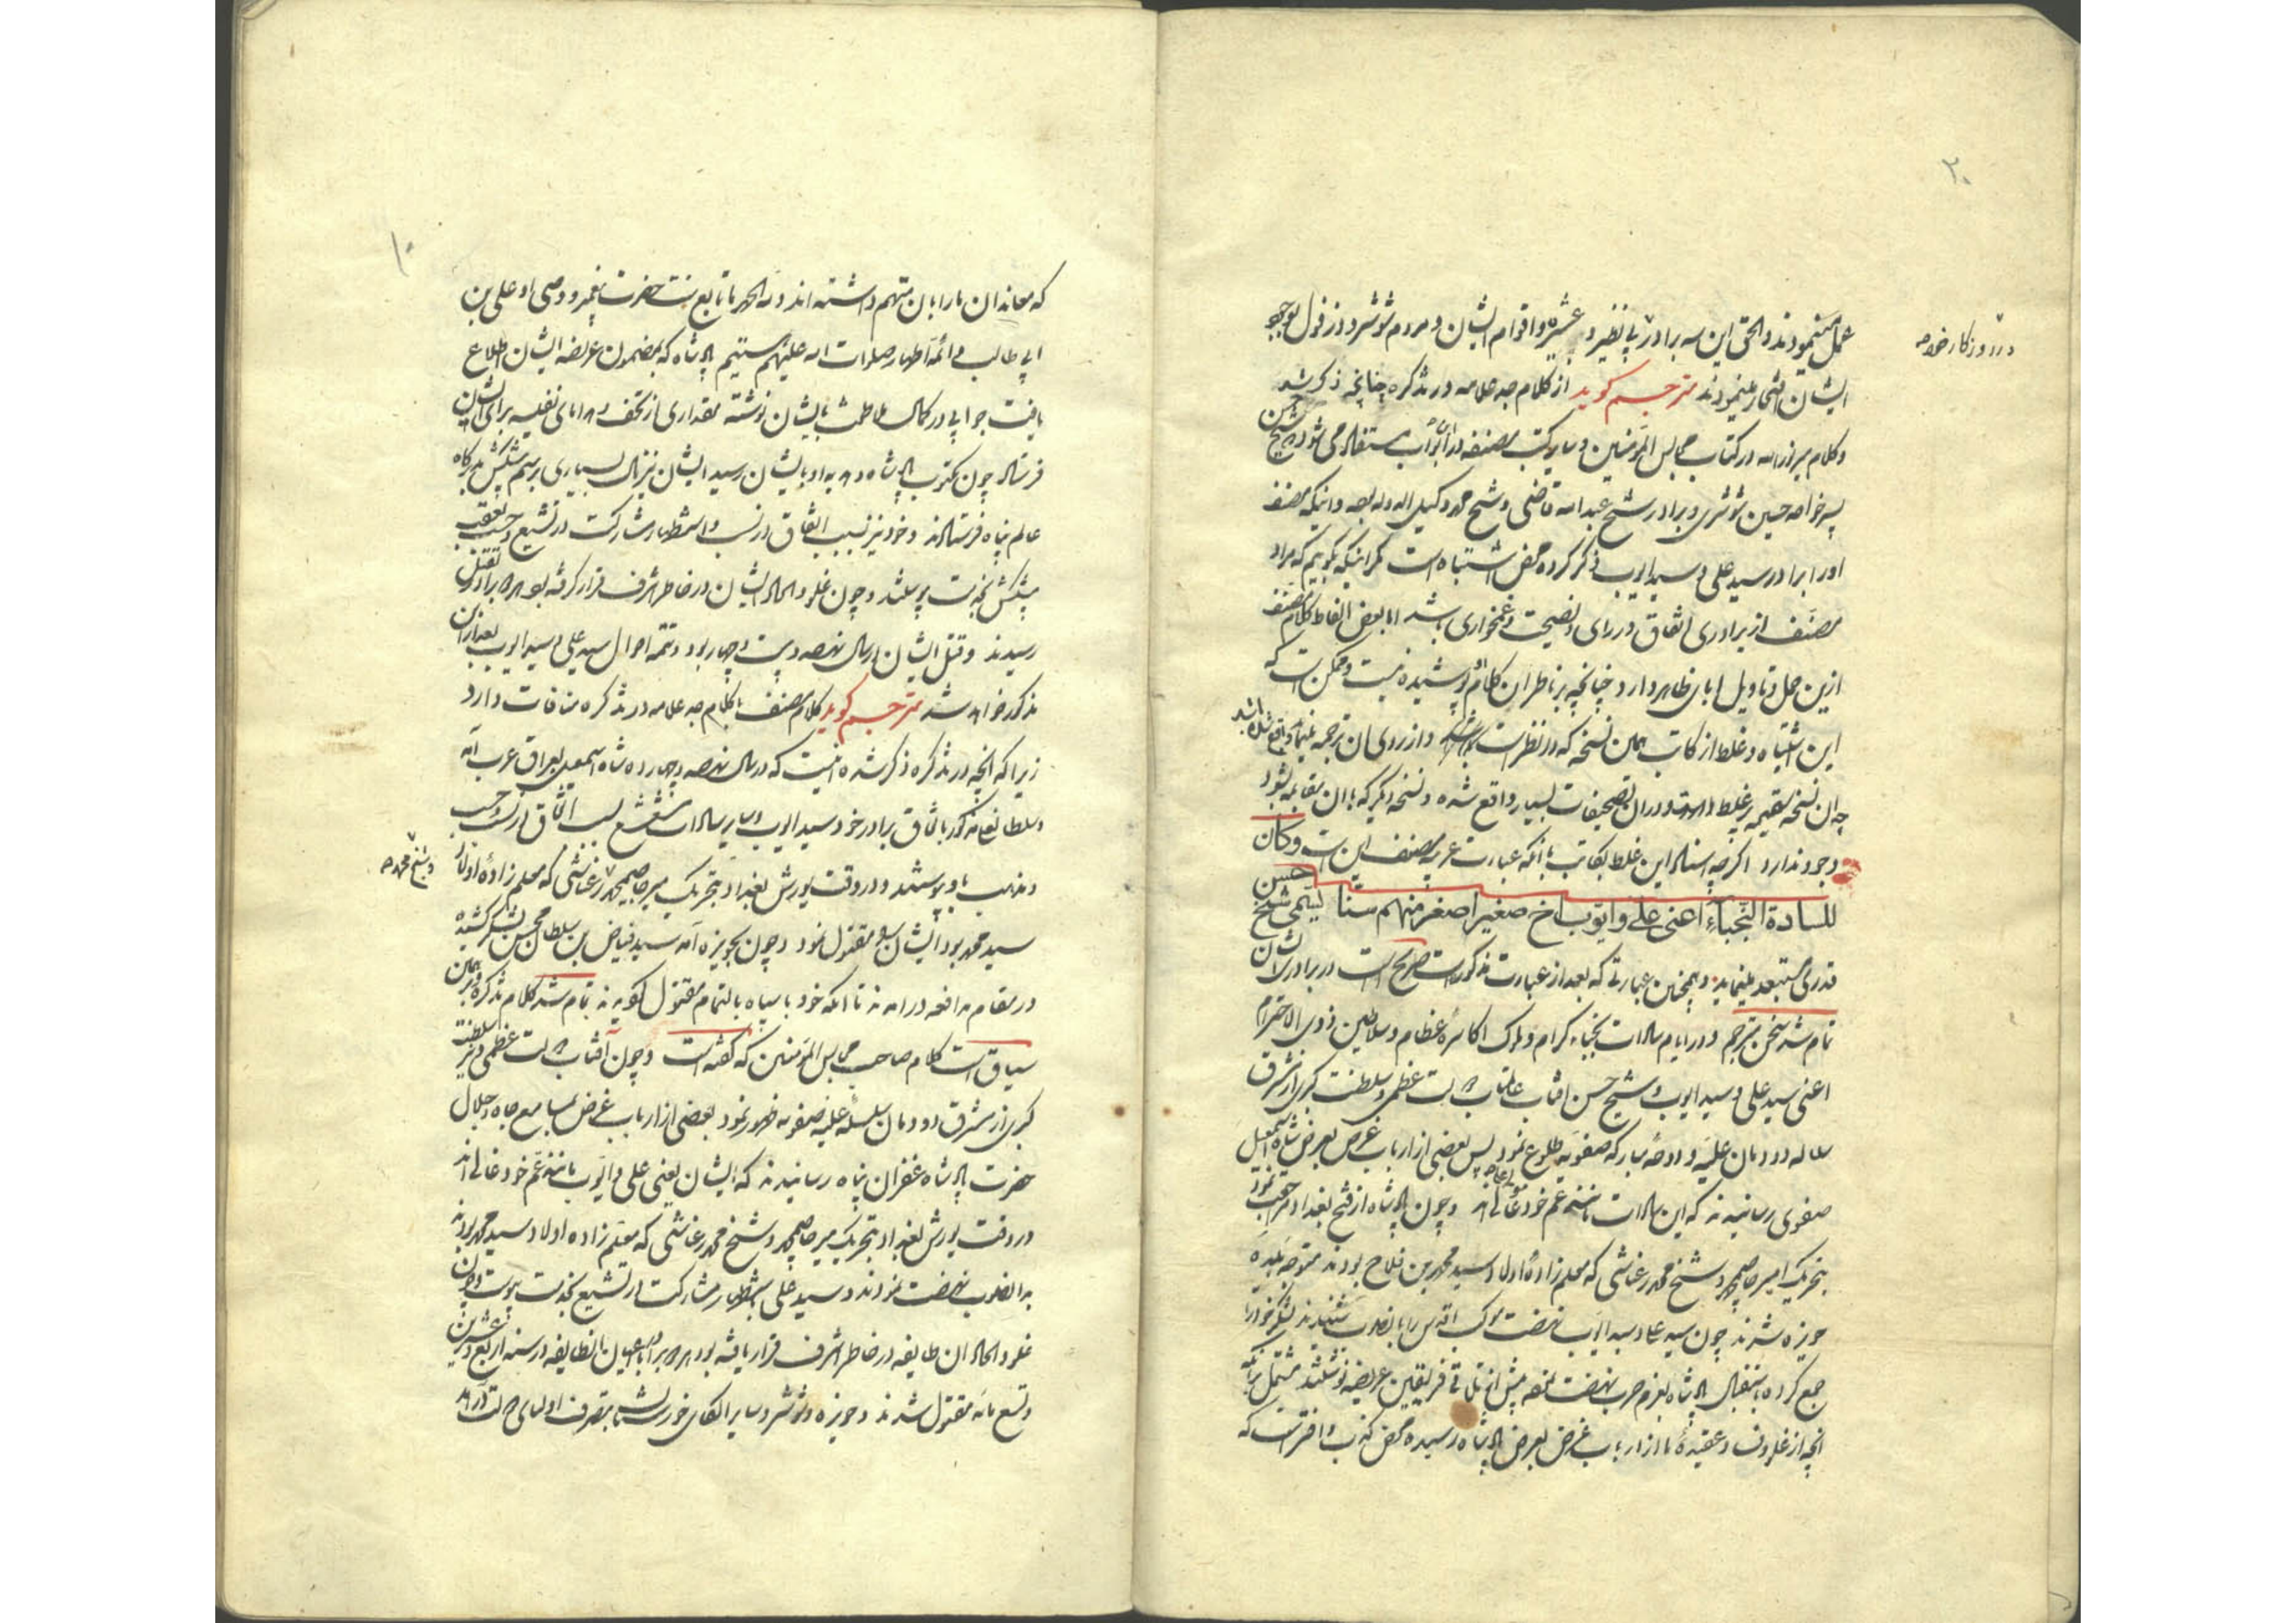 ۲۰
عمل مینمودند والحق این سه برادر بی نظیر در عشیره و اقوام ایشان و مردم شوشتر و دزفول بوجود
در روزگار خود
ایشان افتخار مینمودند مترجم گوید از کلام جد علامه در تذکره چنانچه ذکر شد
و کلام میر نورالله در کتاب مجالس المؤمنین و سایر کتب مصنفه در این ابواب مستفاد می شود که شیخ حسن
پسر خواجه حسین شوشتری و برادر شیخ عبدالله قاضی و شیخ محمد وکیل الدوله بوده و اینکه مصنف
او را برادر سید علی و سید ایوب ذکر کرده محض اشتباه است مگر اینکه بگوییم که مراد
مصنف از برادری اتفاق در رای و نصیحت و غمخواری باشد اما بعض الفاظ کلام مصنف
ازین حمل و تاویل ابای ظاهر دارد چنانچه بر ناظران کلام پوشیده نیست و ممکن است که
این اشتباه و غلط از کاتب همین نسخه که در نظر است و از روی آن ترجمه مینمایم واقع شده باشد
چه آن نسخه سقیمه پر غلط است و در آن تصحیفات بسیار واقع شده و نسخه دیگر که با آن مقابله شود
وجود ندارد اگرچه اسناد این غلط بکاتب با آنکه عبارت عربیه مصنف این است وکان
للسادة النجباء اعنی علی و ایوب اخ صغیر اصغر منهم سنا یسمی شیخ حسن
قدری مستبعد مینماید و همچنین عبارتی که بعد از عبارت مذکور است صریح است در برادری ایشان
تمام شد سخن مترجم و در ایام سادات نجباء کرام و ملوک اکاسره عظام و سلاطین ذوی الاحترام
اعنی سید علی و سید ایوب و شیخ حسن آفتاب عالمتاب دولت عظمی و سلطنت کبری از مشرق
سلاله دودمان علیه و دوحه مبارکه صفویه طلوع نمود پس بعضی از ارباب غرض بعرض شاه اسمعیل
صفوی رسانیدند که این سادات مانند عم خود غالی اند و چون پادشاه از فتح بغداد مراجعت نمود
بتحریک امیر حاج محمد و شیخ محمد رعناشی که معلم زاده اولاد سید محمد بن فلاح بودند متوجه بلده
حویزه شدند چون سید علی و سید ایوب نهضت موکب اقدس را بآنصوب شنیدند لشکر خود را
جمع کرده باستقبال پادشاه بعزم حرب نهضت نموده پیش از تلاقی فریقین عریضه نوشتند مشتمل بر آنکه
آنچه از غلو و عقیده ما از ارباب غرض بعرض پادشاه رسیده محض کذب و افترا است که
۱۰
که معاندان ما را بآن متهم داشته اند و لله الحمد ما تابع سنت حضرت پیغمبر و وصی او علی بن
ابی طالب و ائمه اطهار صلوات الله علیهم هستیم پادشاه که بمضمون عریضه ایشان اطلاع
یافت جوابی در کمال ملاطفت بایشان نوشته مقداری از تحف و هدایای نفیسه برای ایشان
فرستاد چون مکتوب پادشاه و هدایا بایشان رسید ایشان نیز مال بسیاری برسم پیشکش بدرگاه
عالم پناه فرستادند و خود نیز بسبب اتفاق در نسب و استظهار مشارکت در تشیع و حسب بعقب
پیشکش بخدمت پیوستند و چون غلو و الحاد ایشان در خاطر اشرف قرار گرفته بود هر دو برادر بقتل
رسیدند و قتل ایشان در سال نهصد و بیست و چهار بود و تتمه احوال سید علی و سید ایوب بعد از این
مذکور خواهد شد مترجم گوید کلام مصنف با کلام جد علامه در تذکره منافات دارد
زیرا که آنچه در تذکره ذکر شده اینست که در سال نهصد و چهارده شاه اسمعیل بعراق عرب آمد
و سلطان مذکور باتفاق برادر خود سید ایوب و سایر سادات مشعشع بسبب اتفاق در نسب و حسب
و مذهب باو پیوستند و در وقت یورش بغداد بتحریک میر حاج محمد رعناشی که معلم زاده اولاد
و شیخ محمد
سید محمد بود ایشان را مقتول نمود و چون بحویزه آمد سید فیاض بن سلطان محسن لشکر کشیده
در مقام مدافعه درآمدند تا آنکه خود با سپاه بالتمام مقتول گردیدند تمام شد کلام تذکره و همین
سیاق است کلام صاحب مجالس المؤمنین که گفته است و چون آفتاب دولت عظمی و نیر سلطنت
کبری از مشرق دودمان سلسله علیه صفویه ظهور نمود بعضی از ارباب غرض بمسامع جاه و جلال
حضرت پادشاه غفران پناه رسانیدند که ایشان یعنی علی و ایوب مانند عم خود غالی اند
در وقت یورش بغداد بتحریک میر حاج محمد و شیخ محمد رعناشی که معلم زاده اولاد سید محمد بودند
بدانصوب نهضت نمودند و سید علی باستظهار مشارکت در تشیع بخدمت پیوست و چون
غلو و الحاد آن طایفه در خاطر اشرف قرار یافته بود هر دو برادر با اعیان آنطایفه در سنه اربع و عشرین
و تسع مائه مقتول شدند و حویزه و شوشتر و سایر الکای خوزستان بتصرف اولیای دولت درآمد